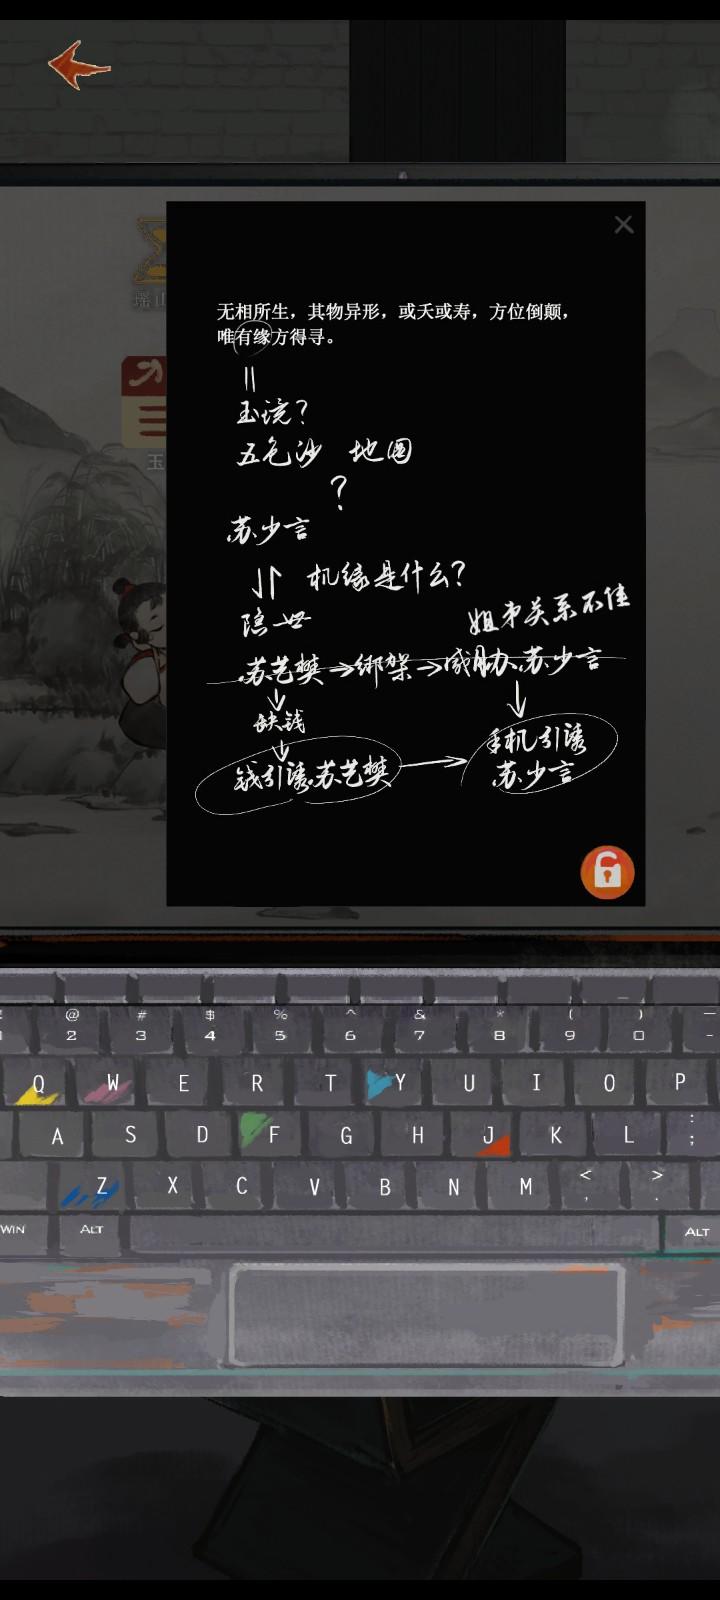 瑶山
玉
无相所生，其物异形，或夭或寿，方位倒颠，
唯有缘方得寻。
玉镜？
五色沙 地图
？
苏少言
机缘是什么？
隐世
姐弟关系不佳
苏艺樊→绑架→威胁苏少言
缺钱
钱引诱苏艺樊
手机引诱
苏少言
@ # $ % ^ & * ( ) —
1 2 3 4 5 6 7 8 9 0 -
Q W E R T Y U I O P
A S D F G H J K L : ;
Z X C V B N M < , > .
WIN ALT ALT